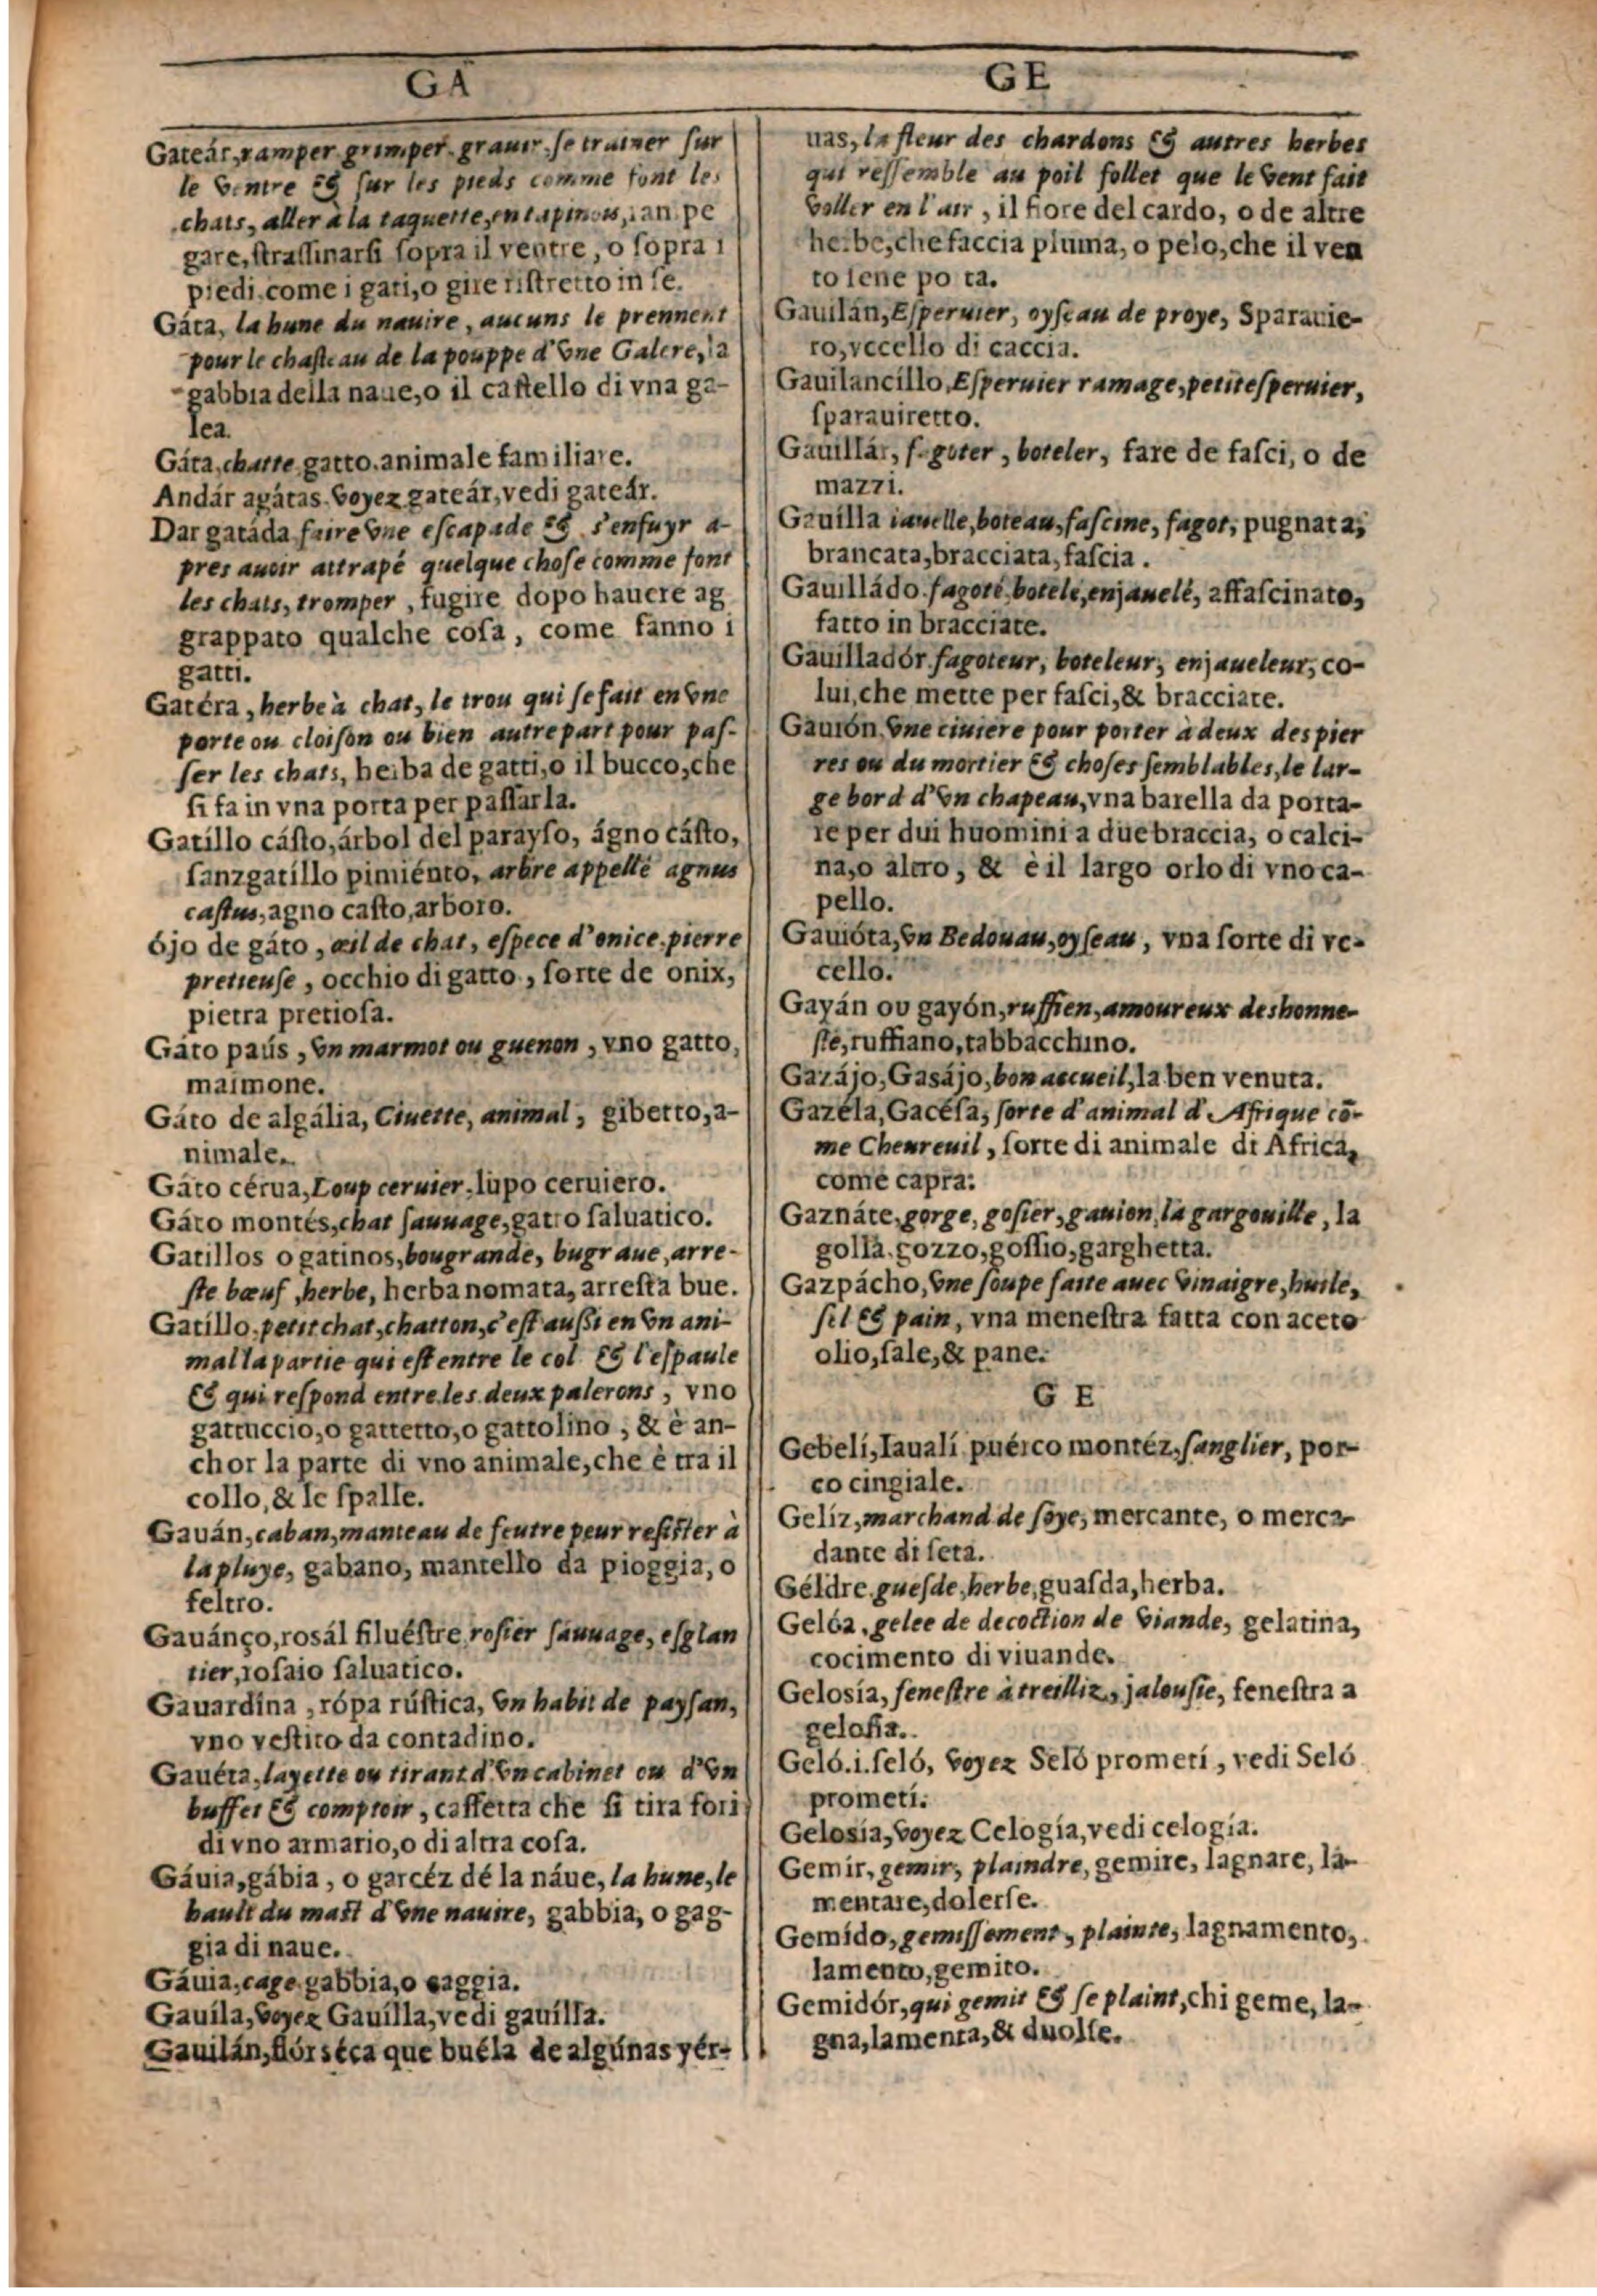 GA
Gateár, ramper, grimper, grauir, se trainer sur
le ventre & sur les pieds comme font les
chats, aller à la taquette, en tapinois, ram pe
gare, strassinarsi sopra il ventre, o sopra i
piedi, come i gati, o gire ristretto in se.
Gáta, la hune du nauire, aucuns le prennent
pour le chasteau de la pouppe d'vne Galere, la
gabbia della naue, o il castello di vna ga-
lea.
Gáta, chatte, gatto, animale familiare.
Andár agátas, voyez gateár, vedi gateár.
Dar gatáda, faire vne escapade & s'enfuyr a-
pres auoir attrapé quelque chose comme font
les chats, tromper, fugire dopo hauere ag
grappato qualche cosa, come fanno i
gatti.
Gatéra, herbe à chat, le trou qui se fait en vne
porte ou cloison ou bien autre part pour pas-
ser les chats, herba de gatti, o il bucco, che
si fa in vna porta per passarla.
Gatíllo cásto, árbol del parayso, ágno cásto,
sanzgatíllo pimiénto, arbre appellé agnus
castus, agno casto, arboro.
ójo de gáto, œil de chat, espece d'onice, pierre
pretieuse, occhio di gatto, sorte de onix,
pietra pretiosa.
Gáto paús, vn marmot ou guenon, vno gatto,
maimone.
Gáto de algália, Ciuette, animal, gibetto, a-
nimale.
Gáto cérua, Loup ceruier, lupo ceruiero.
Gáto montés, chat sauuage, gatto saluatico.
Gatillos o gatinos, bougrande, bugraue, arre-
ste bœuf, herbe, herba nomata, arresta bue.
Gatíllo, petit chat, chatton, c'est aussi en vn ani-
mal la partie qui est entre le col & l'espaule
& qui respond entre les deux palerons, vno
gattuccio, o gattetto, o gattolino, & è an-
chor la parte di vno animale, che è tra il
collo, & le spalle.
Gauán, caban, manteau de feutre peur resister à
la pluye, gabano, mantello da pioggia, o
feltro.
Gauánço, rosál siluéstre, rosier sauuage, esglan
tier, rosaio saluatico.
Gauardína, rópa rústica, vn habit de paysan,
vno vestito da contadino.
Gauéta, layette ou tirant d'vn cabinet ou d'vn
buffet & comptoir, caffetta che si tira fori
di vno armario, o di altra cosa.
Gáuia, gábia, o garcéz dé la náue, la hune, le
hault du mast d'vne nauire, gabbia, o gag-
gia di naue.
Gáuia, cage, gabbia, o gaggia.
Gauíla, voyez Gauílla, vedi gauílla.
Gauilán, flór séca que buéla de algúnas yér-
GE
uas, la fleur des chardons & autres herbes
qui ressemble au poil follet que le vent fait
voller en l'air, il fiore del cardo, o de altre
herbe, che faccia piuma, o pelo, che il ven
to sene porta.
Gauilán, Esperuier, oyseau de proye, Sparauie-
ro, vccello di caccia.
Gauilancíllo, Esperuier ramage, petit esperuier,
sparauiretto.
Gauillár, fagoter, boteler, fare de fasci, o de
mazzi.
Gauílla iauelle, boteau, fascine, fagot, pugnata,
brancata, bracciata, fascia.
Gauilládo, fagoté, botelé, enjauelé, affascinato,
fatto in bracciate.
Gauilladór, fagoteur, boteleur, enjaueleur, co-
lui, che mette per fasci, & bracciate.
Gauión, vne ciuiere pour porter à deux des pier
res ou du mortier & choses semblables, le lar-
ge bord d'vn chapeau, vna barella da porta-
re per dui huomini a due braccia, o calci-
na, o altro, & è il largo orlo di vno ca-
pello.
Gauióta, vn Bedouau, oyseau, vna sorte di vc-
cello.
Gayán ou gayón, ruffien, amoureux deshonne-
ste, ruffiano, tabbacchino.
Gazájo, Gasájo, bon accueil, la ben venuta.
Gazéla, Gacésa, sorte d'animal d'Afrique cō-
me Cheureuil, sorte di animale di Africa,
come capra:
Gaznáte, gorge, gosier, gauion, la gargouille, la
golla, gozzo, gossio, garghetta.
Gazpácho, vne soupe faite auec vinaigre, huile,
sel & pain, vna menestra fatta con aceto
olio, sale, & pane.
G E
Gebelí, Iaualí puérco montéz, sanglier, por-
co cingiale.
Gelíz, marchand de soye, mercante, o merca-
dante di seta.
Géldre, guesde, herbe, guasda, herba.
Gelóa, gelee de decoction de viande, gelatina,
cocimento di viuande.
Gelosía, fenestre à treilliz, jalousie, fenestra a
gelosia.
Geló.i.seló, voyez Seló prometí, vedi Seló
prometí.
Gelosía, voyez Celogía, vedi celogía.
Gemír, gemir, plaindre, gemire, lagnare, la-
mentare, dolerse.
Gemído, gemissement, plainte, lagnamento,
lamento, gemito.
Gemidór, qui gemit & se plaint, chi geme, la-
gna, lamenta, & duolse.